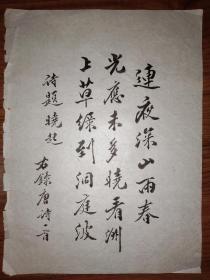 連夜深山雨春
光應未多曉看洲
上草綠到洞庭波
詩題曉起
右錄唐詩一首